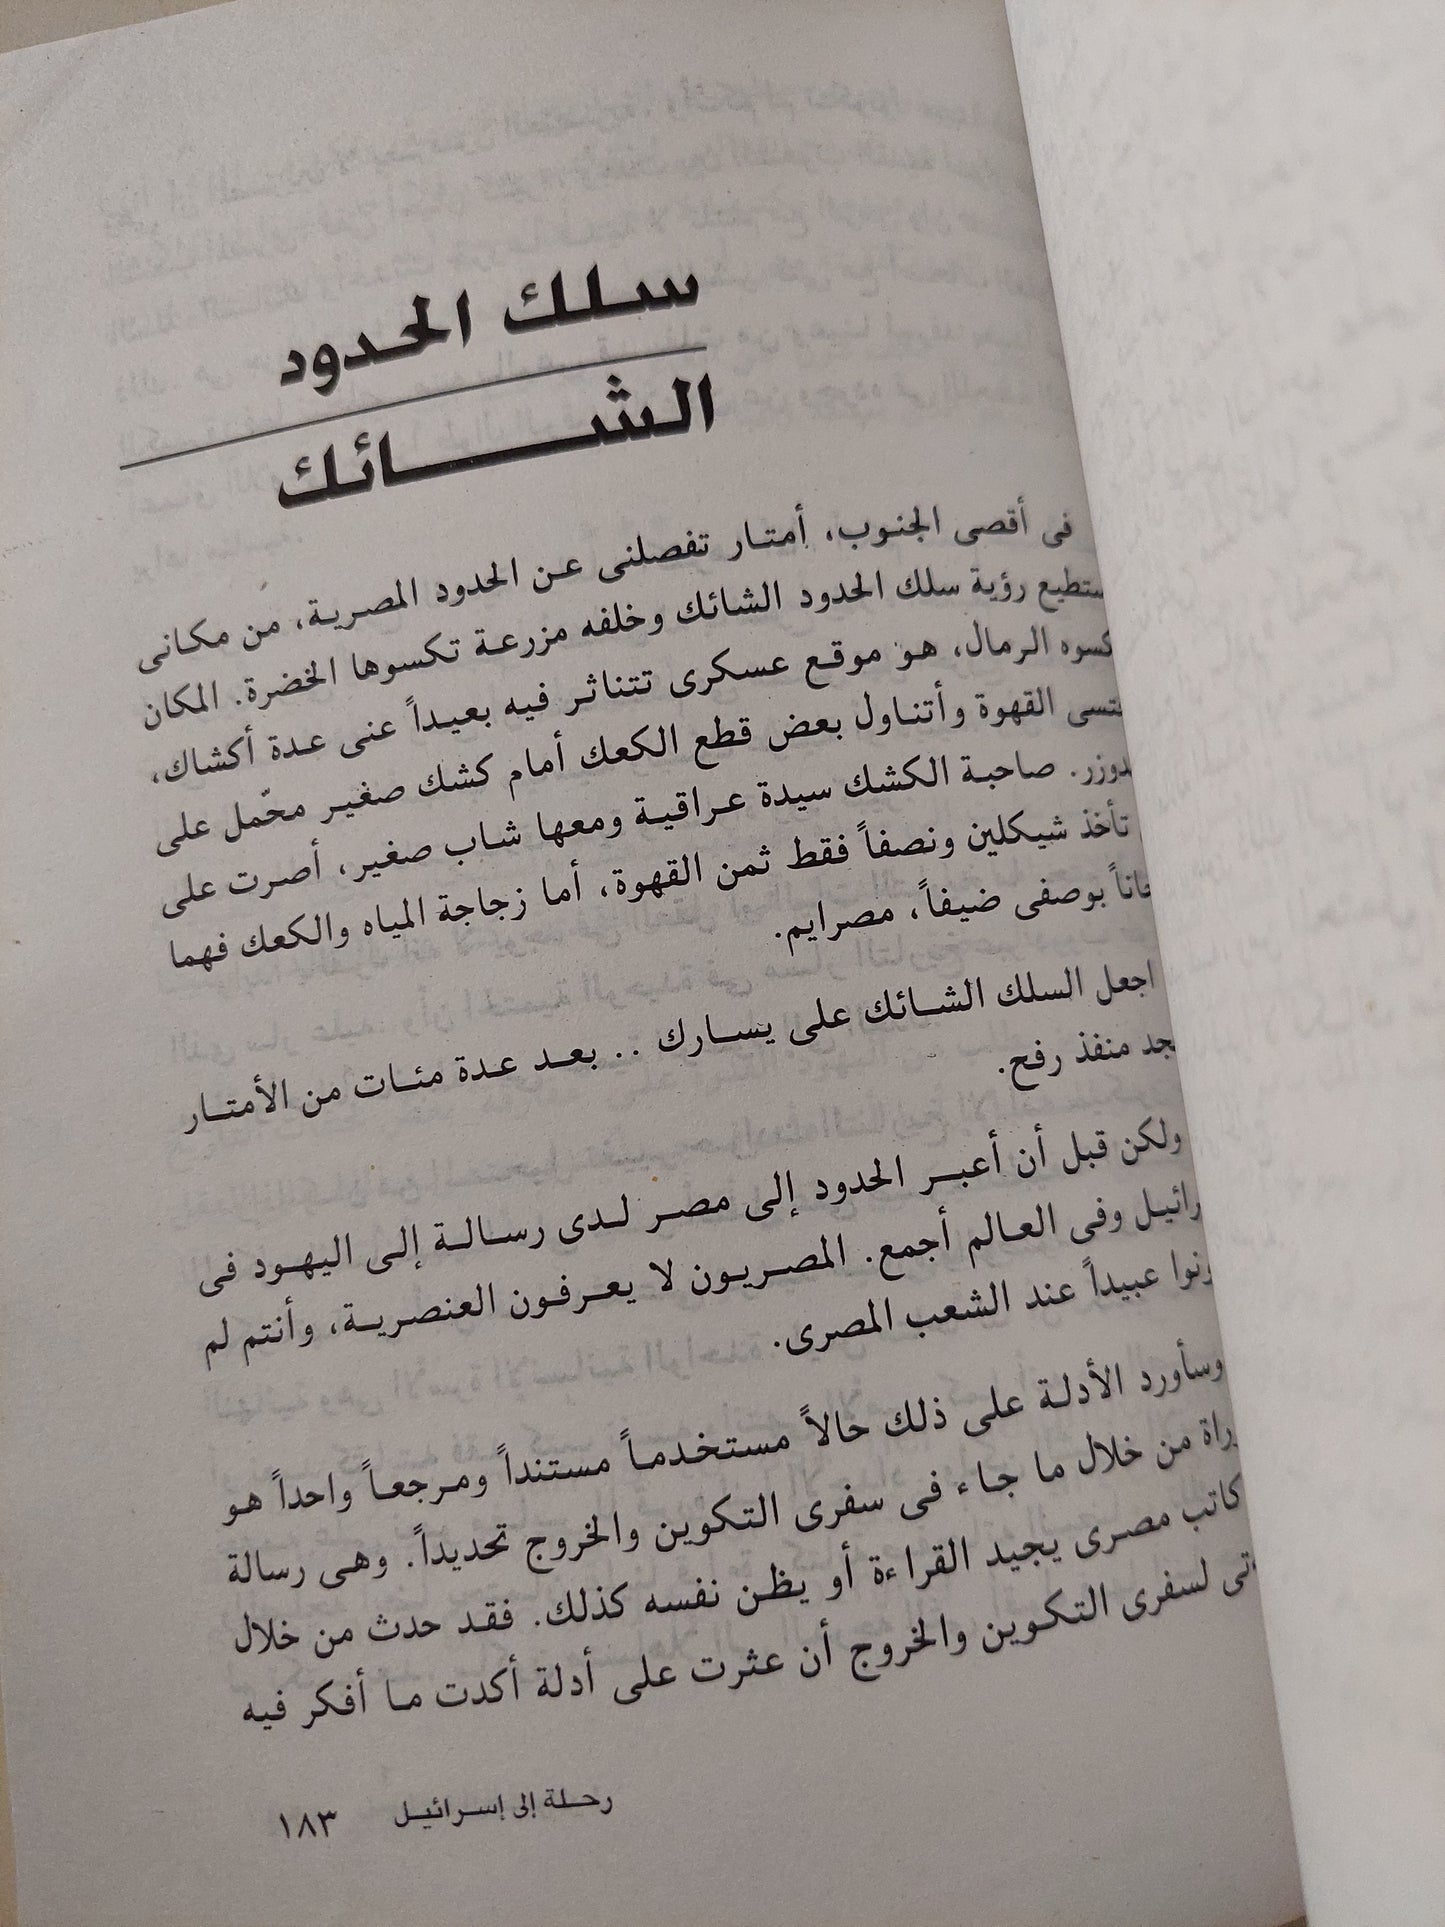 سلك الحدود
الشائك
فى أقصى الجنوب، أمتار تفصلنى عن الحدود المصرية، من مكانى
ستطيع رؤية سلك الحدود الشائك وخلفه مزرعة تكسوها الخضرة. المكان
كسوه الرمال، هو موقع عسكرى تتناثر فيه بعيداً عنى عدة أكشاك،
تسى القهوة وأتناول بعض قطع الكعك أمام كشك صغير محّمل على
دوزر. صاحبة الكشك سيدة عراقية ومعها شاب صغير، أصرت على
تأخذ شيكلين ونصفاً فقط ثمن القهوة، أما زجاجة المياه والكعك فهما
اناً بوصفى ضيفاً، مصرايم.
اجعل السلك الشائك على يسارك .. بعد عدة مئات من الأمتار
جد منفذ رفح.
ولكن قبل أن أعبر الحدود إلى مصر لدى رسالة إلى اليهود فى
رائيل وفى العالم أجمع. المصريون لا يعرفون العنصرية، وأنتم لم
ونوا عبيداً عند الشعب المصرى.
وسأورد الأدلة على ذلك حالاً مستخدماً مستنداً ومرجعاً واحداً هو
راة من خلال ما جاء فى سفرى التكوين والخروج تحديداً. وهى رسالة
كاتب مصرى يجيد القراءة أو يظن نفسه كذلك. فقد حدث من خلال
تى لسفرى التكوين والخروج أن عثرت على أدلة أكدت ما أفكر فيه
رحلة إلى إسرائيل ١٨٣